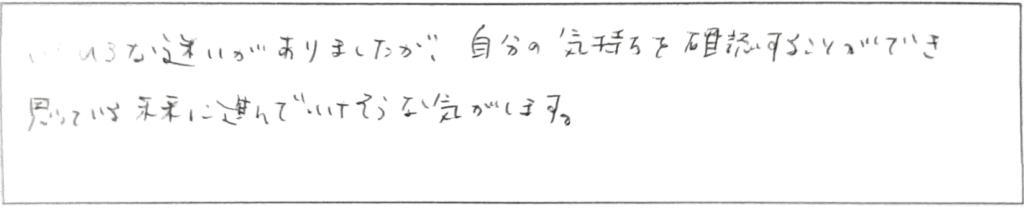 いろいろな迷いがありましたが、自分の気持ちを確認することができ
思っている未来に進んでいけそうな気がします。